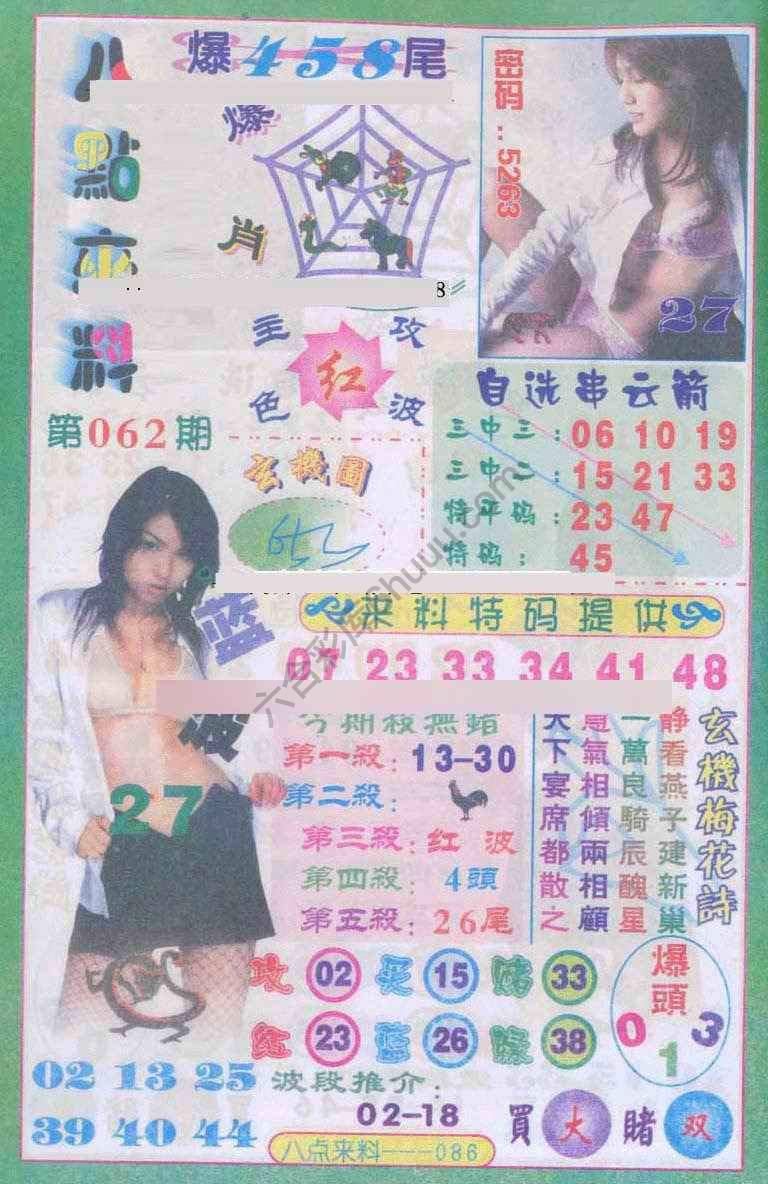 八點來料
爆458尾
爆
肖
8
密码..5263
27
主攻
红
色波
第062期
玄機圖
自选串云箭
三中三：06 10 19
三中二：15 21 33
特平码：23 47
特码：45
六合彩库8huuu.com
來料特码提供
07 23 33 34 41 48
蓝波
27
今期殺無錯
第一殺：13-30
第二殺：
第三殺：红波
第四殺：4頭
第五殺：26尾
玄機梅花詩
静看燕子建新巢
一萬良騎辰醜星
意氣相傾兩相顧
天下宴席都散之
攻02买15赌33
红23蓝26綠38
爆頭
0 1 3
02 13 25
39 40 44
波段推介：
02-18
買大賭双
八点来料---086